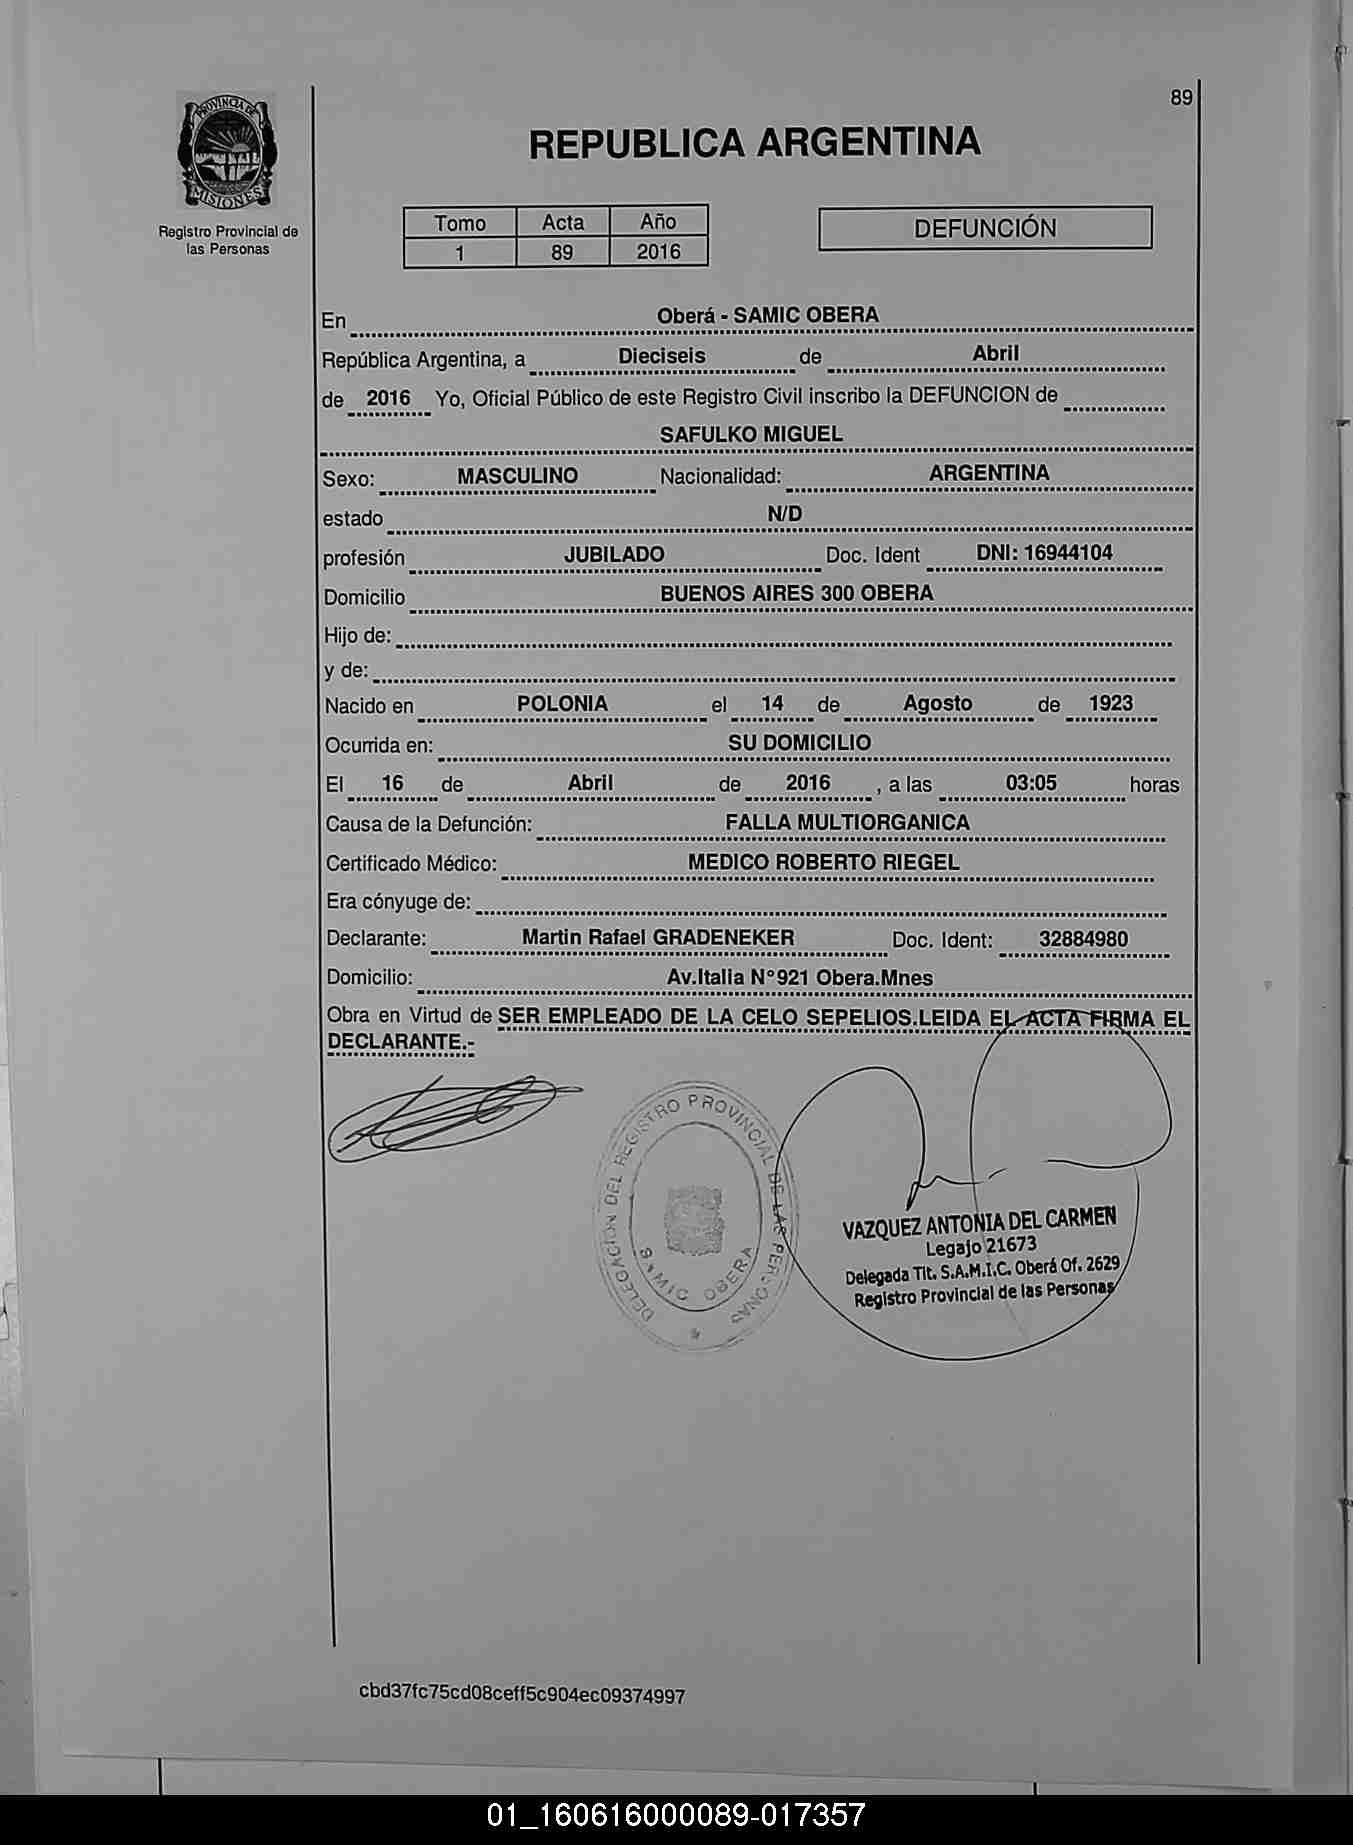 89
PROVINCIA DE
MISIONES
Registro Provincial de
las Personas
REPUBLICA ARGENTINA
Tomo Acta Año
1 89 2016
DEFUNCIÓN
En Oberá - SAMIC OBERA
República Argentina, a Dieciseis de Abril
de 2016 Yo, Oficial Público de este Registro Civil inscribo la DEFUNCION de
SAFULKO MIGUEL
Sexo: MASCULINO Nacionalidad: ARGENTINA
estado N/D
profesión JUBILADO Doc. Ident DNI: 16944104
Domicilio BUENOS AIRES 300 OBERA
Hijo de:
y de:
Nacido en POLONIA el 14 de Agosto de 1923
Ocurrida en: SU DOMICILIO
El 16 de Abril de 2016 , a las 03:05 horas
Causa de la Defunción: FALLA MULTIORGANICA
Certificado Médico: MEDICO ROBERTO RIEGEL
Era cónyuge de:
Declarante: Martin Rafael GRADENEKER Doc. Ident: 32884980
Domicilio: Av.Italia N°921 Obera.Mnes
Obra en Virtud de SER EMPLEADO DE LA CELO SEPELIOS.LEIDA EL ACTA FIRMA EL
DECLARANTE.-
DELEGACION DEL REGISTRO PROVINCIAL DE LAS PERSONAS
SAMIC OBERA
VAZQUEZ ANTONIA DEL CARMEN
Legajo 21673
Delegada Tit. S.A.M.I.C. Oberá Of. 2629
Registro Provincial de las Personas
cbd37fc75cd08ceff5c904ec09374997
01_160616000089-017357